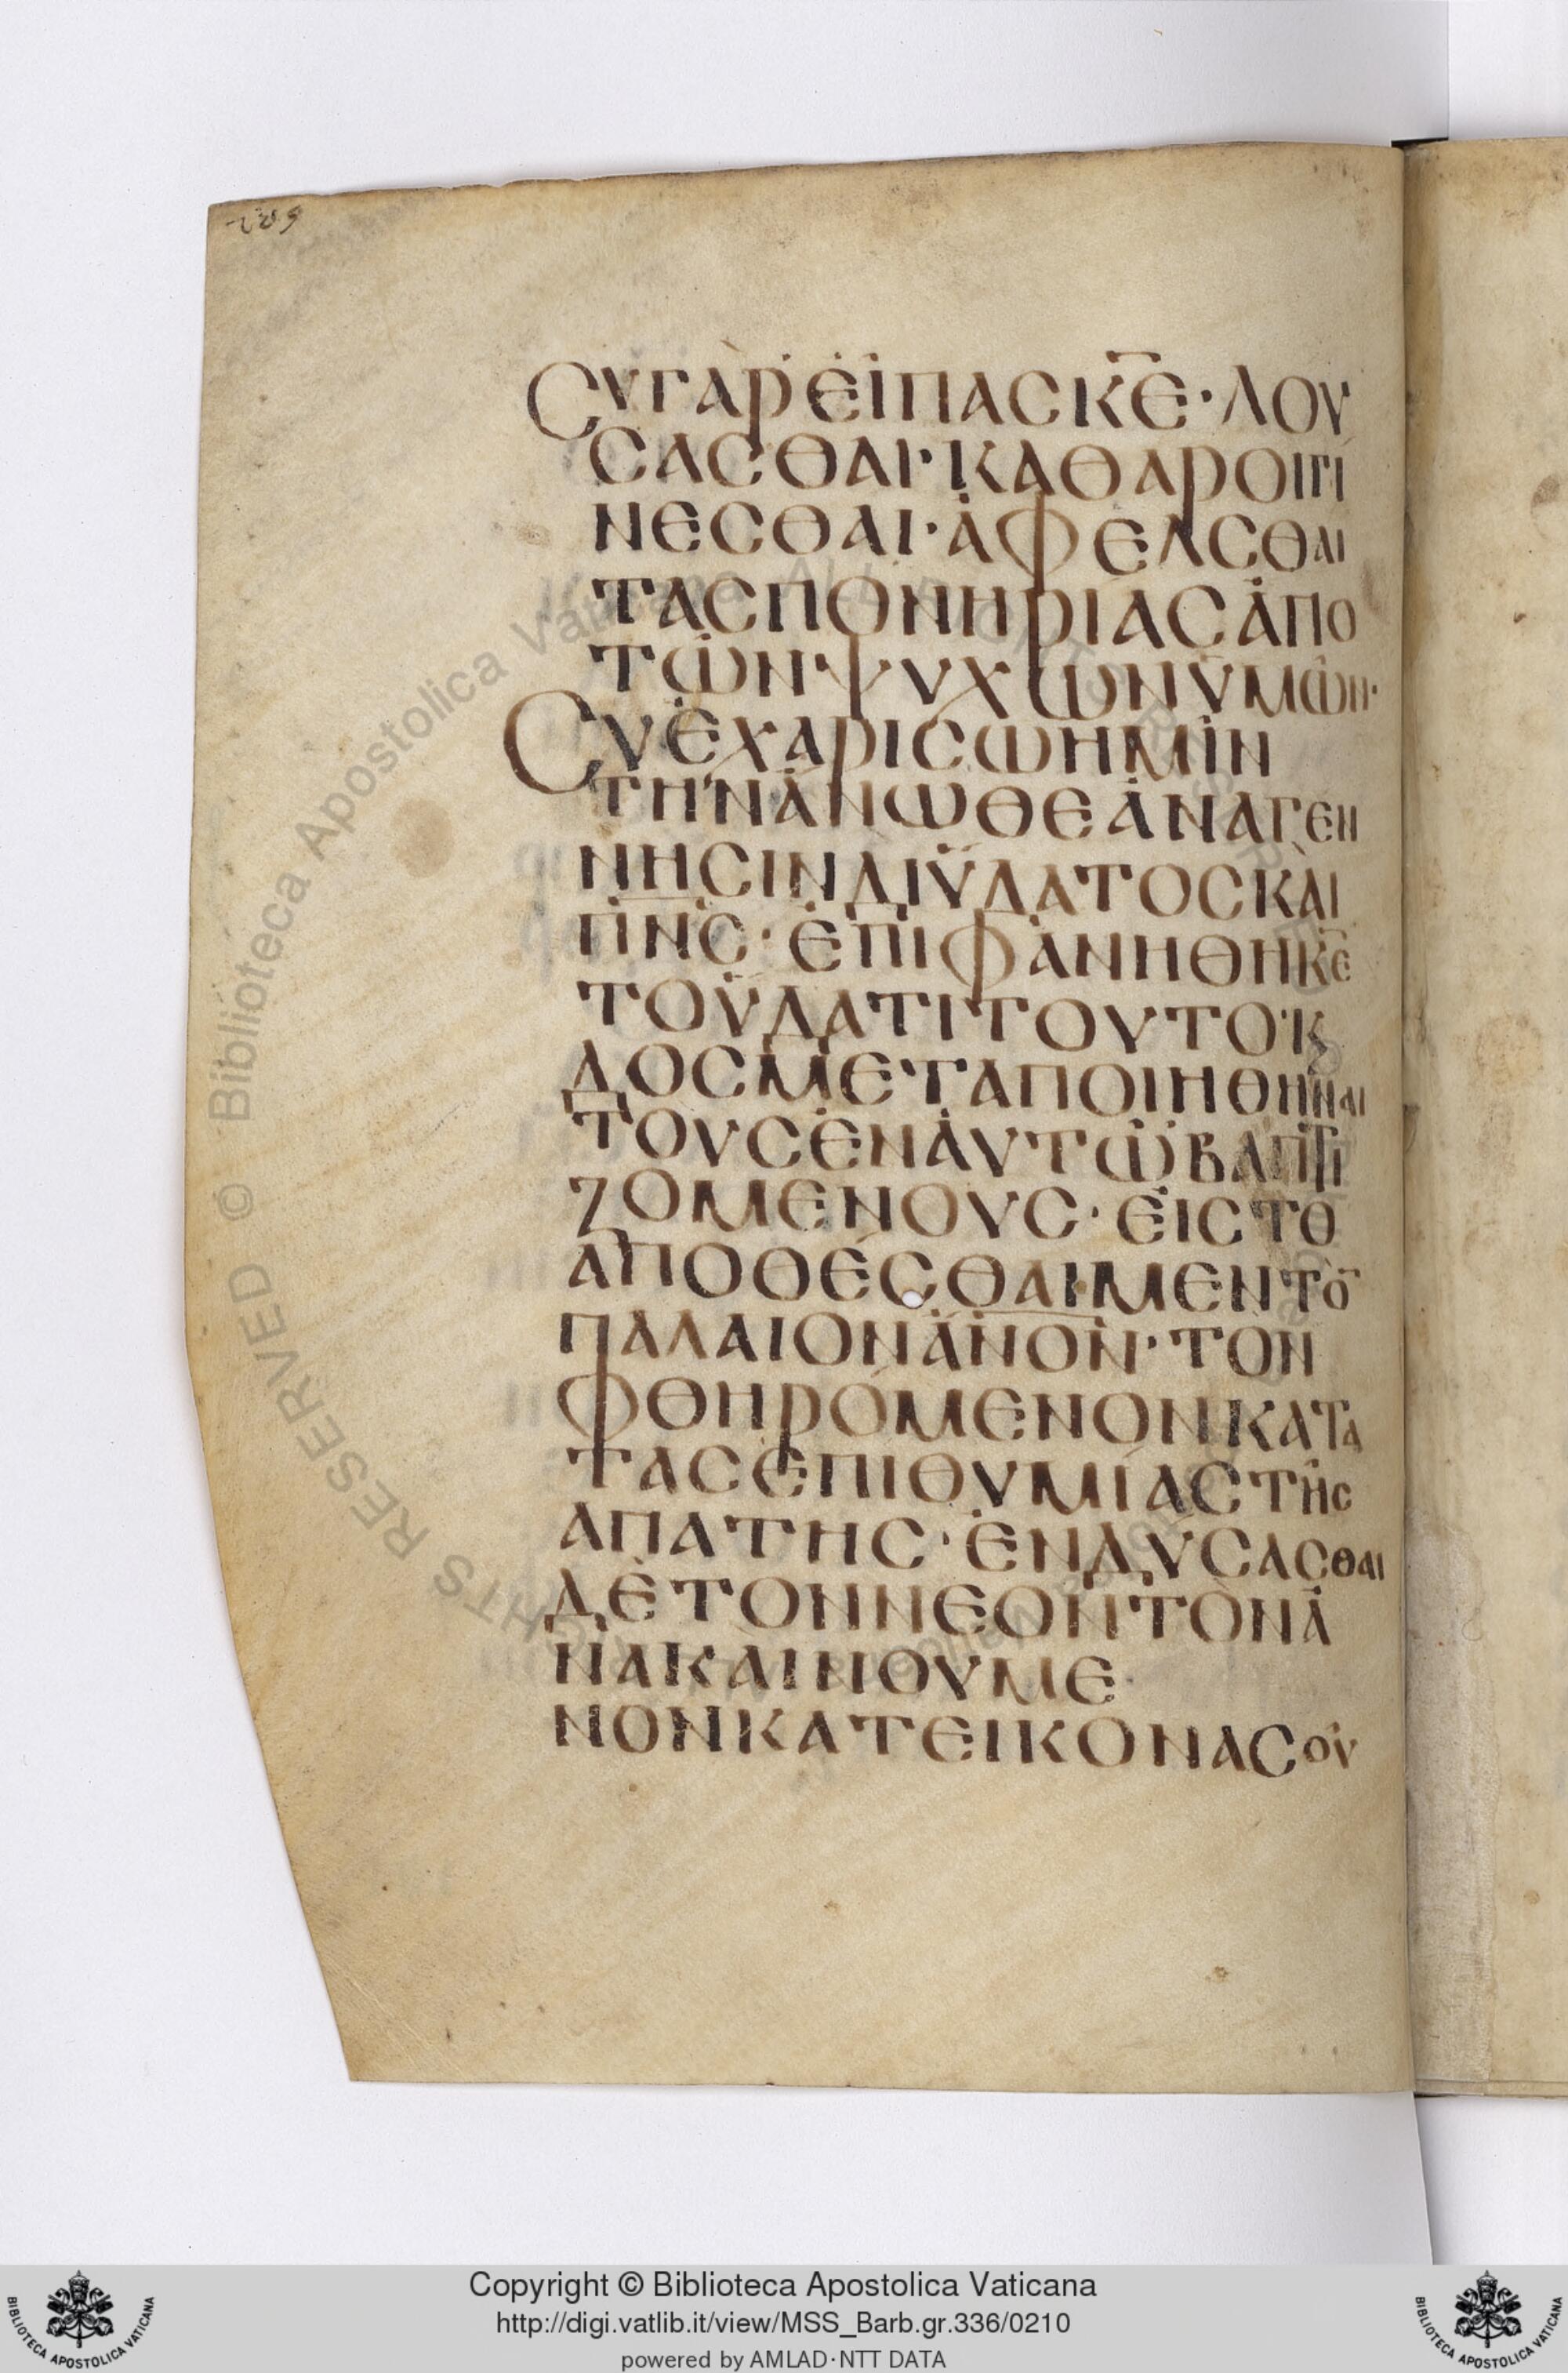 209
ϹΥΓΑΡΕΙΠΑϹΚ̅Ε̅·ΛΟΥ
ϹΑϹΘΑΙ·ΚΑΘΑΡΟΙΓΙ
ΝΕϹΘΑΙ·ΑΦΕΛϹΘΑΙ
ΤΑϹΠΟΝΗΡΙΑϹΑΠΟ
ΤΩΝΨΥΧΩΝΥΜΩΝ·
ϹΥΕΧΑΡΙϹΩΗΜΙΝ
ΤΗΝΑΝΩΘΕΑΝΑΓΕΝ
ΝΗϹΙΝΔΙΫΔΑΤΟϹΚΑΙ
Π̅Ν̅Ϲ̅·ΕΠΙΦΑΝΗΘΗΚ̅Ε̅
ΤΟΫΔΑΤΙΤΟΥΤΟ·Ϗ
ΔΟϹΜΕΤΑΠΟΙΗΘΗΝΑΙ
ΤΟΥϹΕΝΑΥΤΩΒΑΠΤΙ
ΖΟΜΕΝΟΥϹ·ΕΙϹΤΟ
ΑΠΟΘΕϹΘΑΙΜΕΝΤΟ̅
ΠΑΛΑΙΟΝΑ̅Ν̅Ο̅Ν̅·ΤΟΝ
ΦΘΗΡΟΜΕΝΟΝΚΑΤΑ
ΤΑϹΕΠΙΘΥΜΙΑϹΤΗϹ
ΑΠΑΤΗϹ·ΕΝΔΥϹΑϹΘΑΙ
ΔΕΤΟΝΝΕΟΝΤΟΝΑ
ΝΑΚΑΙΝΟΥΜΕ
ΝΟΝΚΑΤΕΙΚΟΝΑϹΟΥ
© Biblioteca Apostolica Vaticana ALL RIGHTS RESERVED
Copyright © Biblioteca Apostolica Vaticana
http://digi.vatlib.it/view/MSS_Barb.gr.336/0210
powered by AMLAD·NTT DATA
BIBLIOTECA APOSTOLICA VATICANA
BIBLIOTECA APOSTOLICA VATICANA